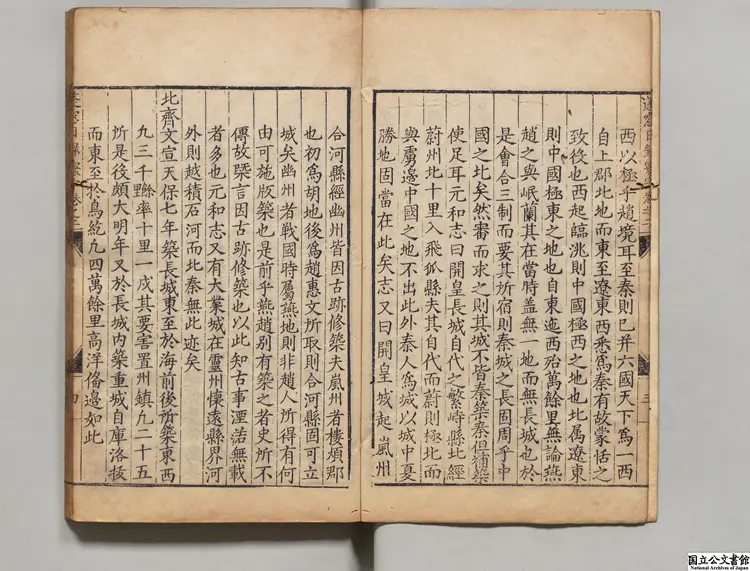 西以極乎趙境耳至秦則已并六國天下爲一西
自上郡北地而東至遼東西悉爲秦有故蒙恬之
致役也西起臨洮則中國極西之地也北属遼東
則中國極東之地也自東迤西殆萬餘里無論燕
趙之與岷蘭其在當時盖無一地而無長城也於
是會合三制而要其所宿則秦城之長固周乎中
國之北矣然審而求之則其城不皆秦築秦但補築
使足耳元和志曰開皇長城自代之繁畤縣北經
蔚州北十里入飛狐縣夫其自代而蔚則極北而
與虜邊中國之地不出此外秦人爲城以城中夏
勝地固當在此矣志又曰開皇城起嵐州
合河縣經幽州皆因古跡修築夫嵐州者樓煩郡
也初爲胡地後爲趙惠文所取則合河縣固可立
城矣幽州者戰國時屬燕地則非趙人所得有何
由可施版築也是前乎燕趙别有築之者史所不
傳故槩言因古跡修築也以此知古事湮沒無載
者多也元和志又有大業城在靈州懷遠縣界河
外則越積石河而北秦無此迹矣
北齊文宣天保七年築長城東至於海前後所築東西
九三千餘率十里一戍其要害置州鎮九二十五
所是後頗大明年又於長城内築重城自庫洛拔
而東至於烏紇九四萬餘里高洋俻邉如此
蓬窓日録 卷之二
三
四
国立公文書館
National Archives of Japan